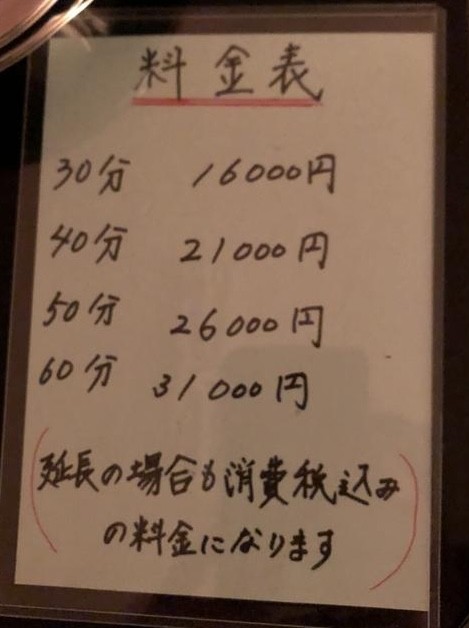 料金表
30分 16000円
40分 21000円
50分 26000円
60分 31000円
(延長の場合も消費税込み
の料金になります)